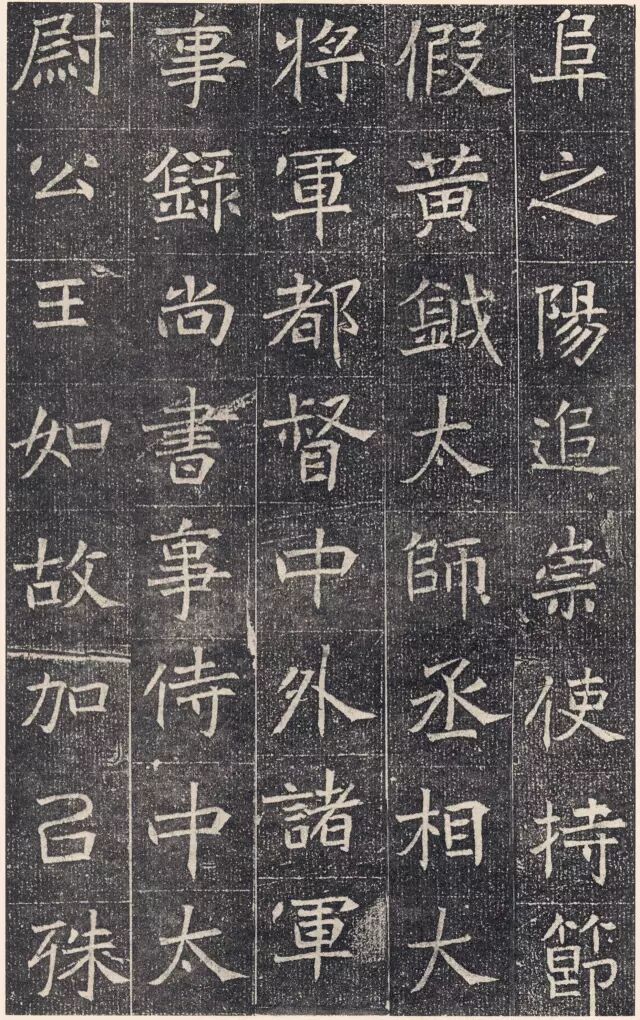 阜之陽追崇使持節
假黃鉞太師丞相大
將軍都督中外諸軍
事錄尚書事侍中太
尉公王如故加㠯殊